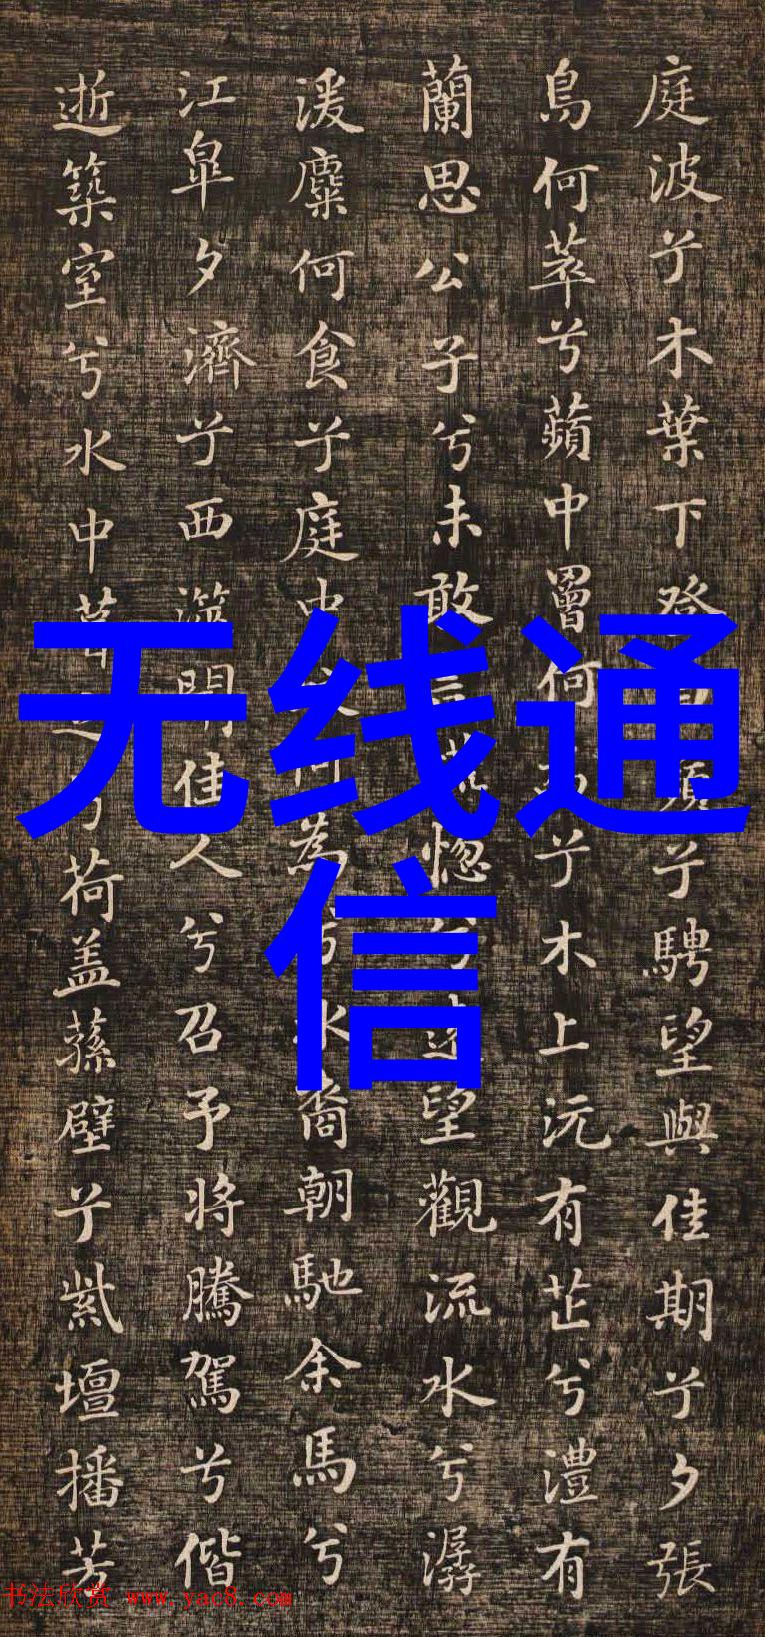 无线通
信
庭波兮木葉下登兮騁望與佳期兮夕張
鳥何萃兮蘋中罾何兮木上沅有芷兮澧有
蘭思公子兮未敢言惚兮望觀流水兮潺
湲麋何食兮庭中何為兮水裔朝馳余馬兮
江皐夕濟兮西澨聞佳人兮召予将騰駕兮偕
逝築室兮水中葺兮荷盖蓀壁兮紫壇播芳
书法欣赏 www.yac8.com